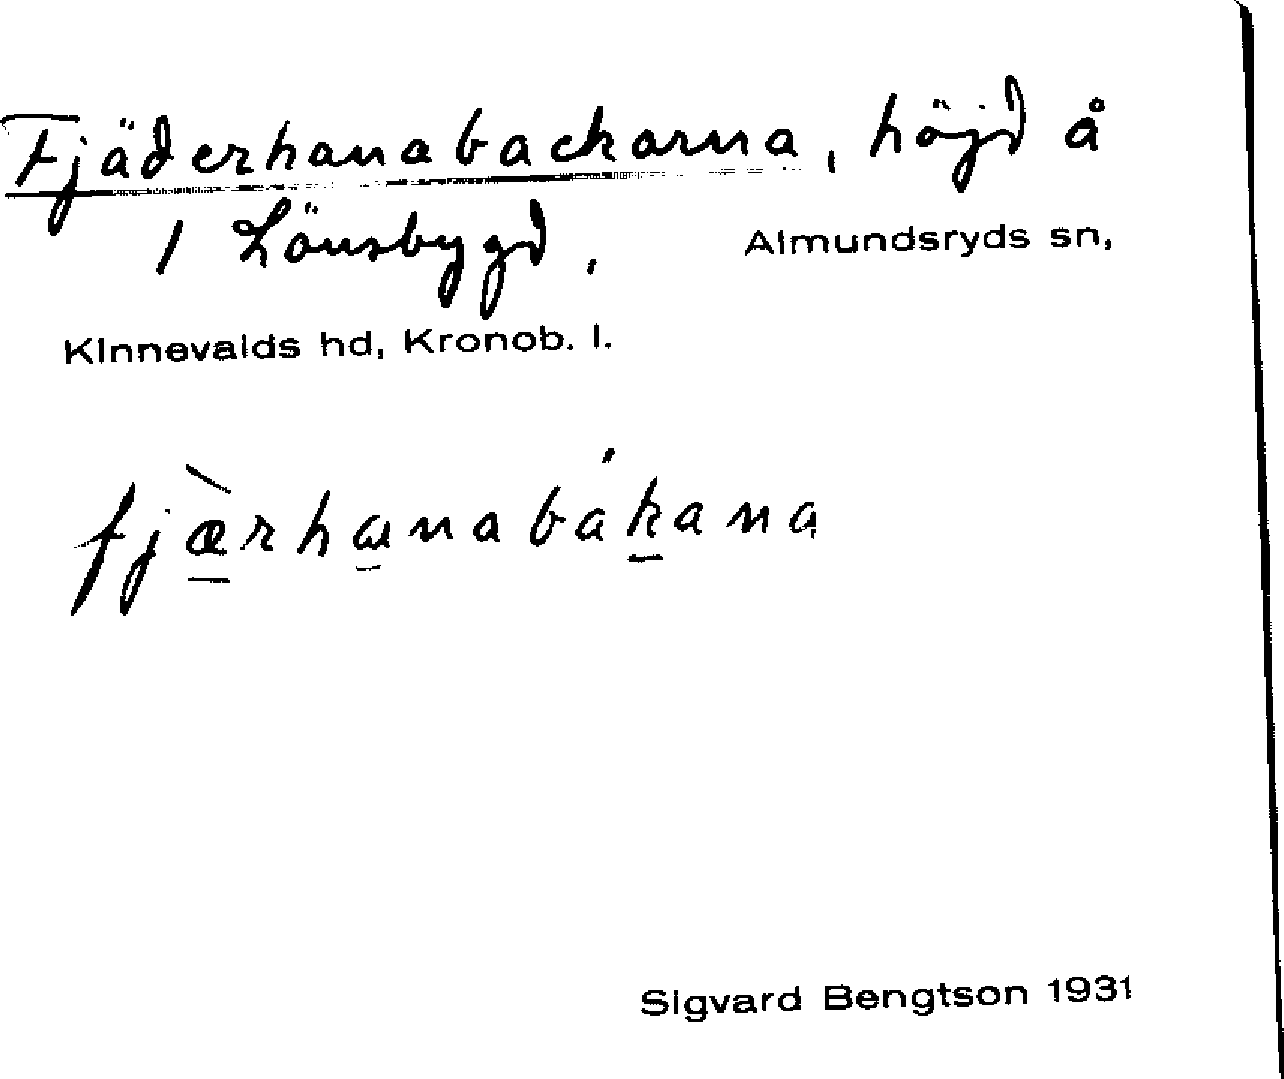 Fjäderhanabackarna, höjd å
1 Lönsbygd,
Almundsryds sn,
Kinnevalds hd, Kronob. l.
fjæ̀rhanabákana
Sigvard Bengtson 1931